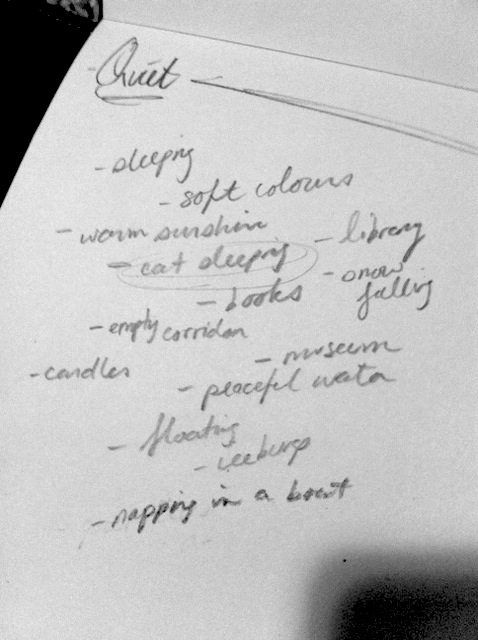 - Quiet
- sleeping
- soft colours
- warm sunshine
- cat sleeping
- library
- books
- snow
falling
- empty corridor
- museum
- candles
- peaceful water
- floating
- iceburgs
- napping in a boat